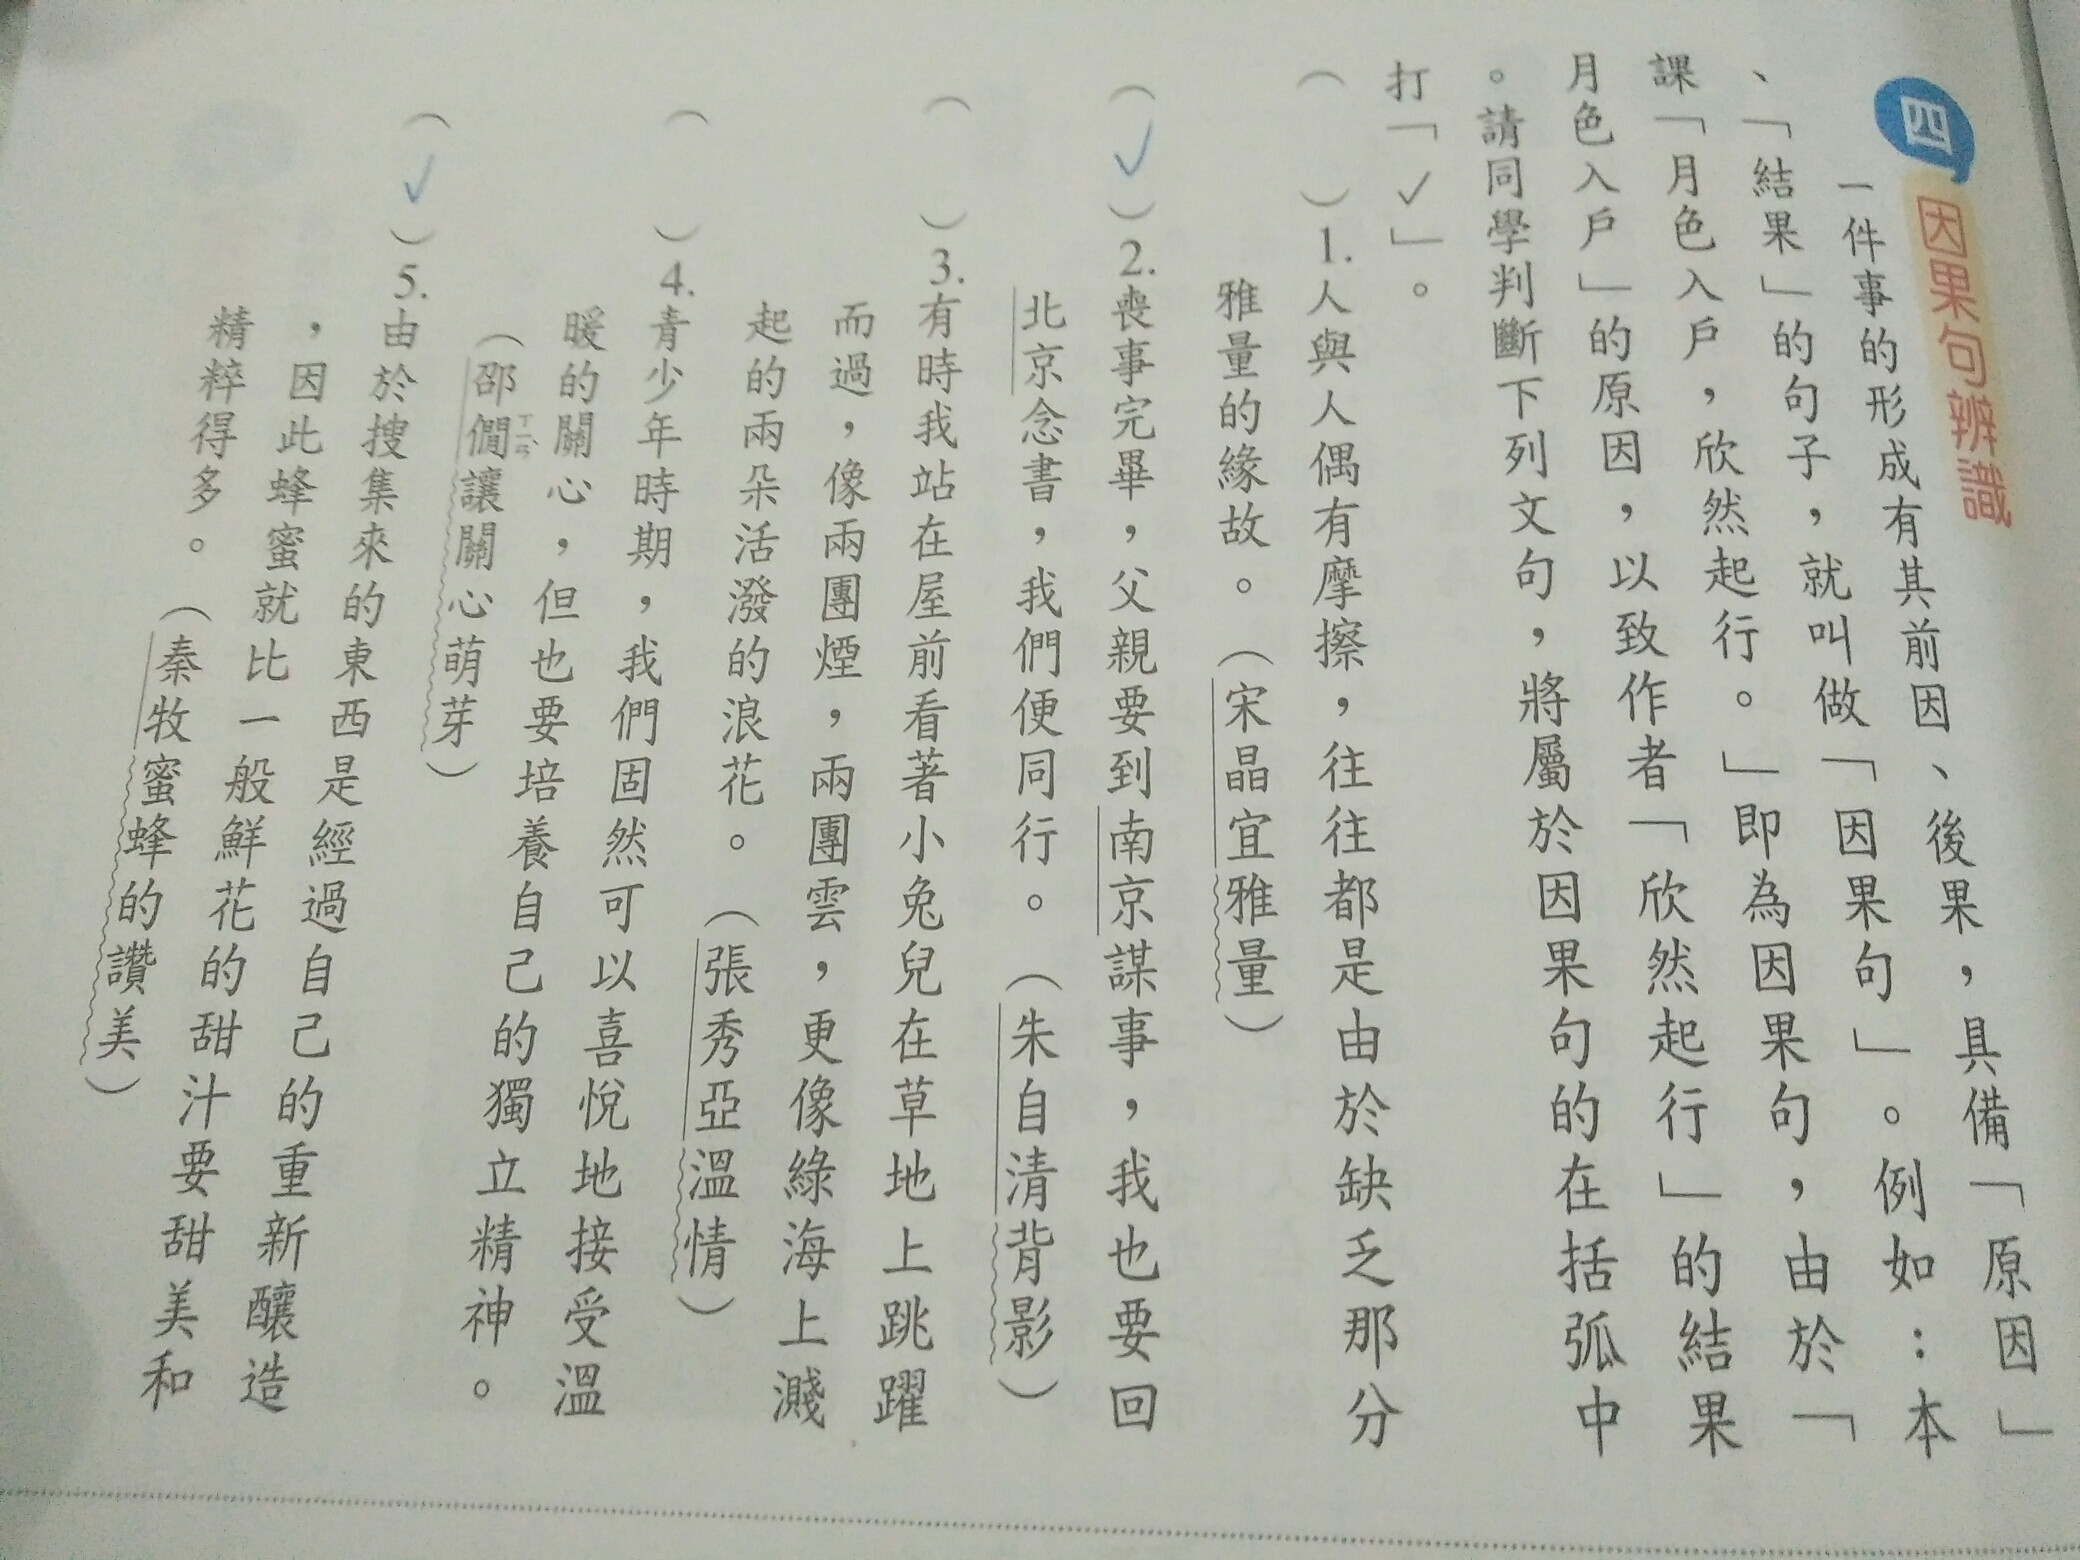 四 因果句辨識
一件事的形成有其前因、後果，具備「原因」
、「結果」的句子，就叫做「因果句」。例如：本
課「月色入戶，欣然起行。」即為因果句，由於「
月色入戶」的原因，以致作者「欣然起行」的結果
。請同學判斷下列文句，將屬於因果句的在括弧中
打「✓」。
（ ）1.人與人偶有摩擦，往往都是由於缺乏那分
雅量的緣故。（宋晶宜雅量）
（✓）2.喪事完畢，父親要到南京謀事，我也要回
北京念書，我們便同行。（朱自清背影）
（ ）3.有時我站在屋前看著小兔兒在草地上跳躍
而過，像兩團煙，兩團雲，更像綠海上濺
起的兩朵活潑的浪花。（張秀亞溫情）
（ ）4.青少年時期，我們固然可以喜悅地接受溫
暖的關心，但也要培養自己的獨立精神。
（邵僩ㄒㄧㄢˋ讓關心萌芽）
（✓）5.由於搜集來的東西是經過自己的重新釀造
，因此蜂蜜就比一般鮮花的甜汁要甜美和
精粹得多。（秦牧蜜蜂的讚美）